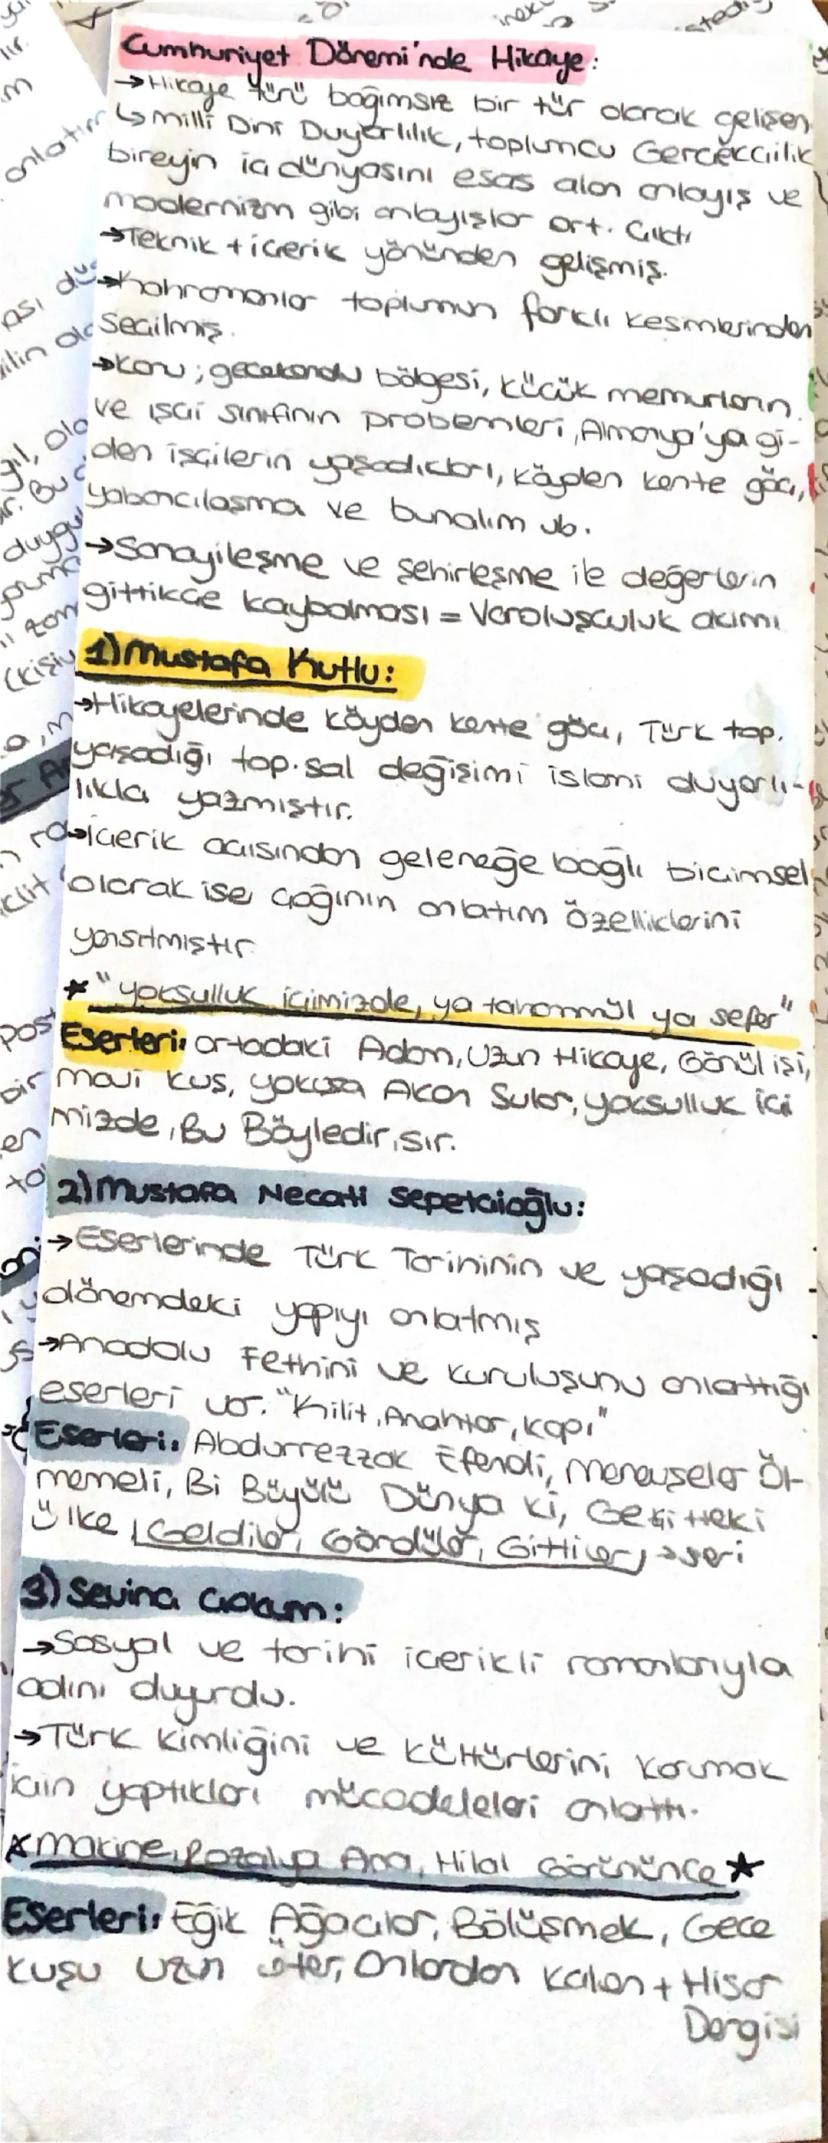 Cumhuriyet Dönemi'nde Hikaye:
→Hikaye türü bağımsız bir tür olarak gelişen
↳Milli Dini Duyarlılık, toplumcu Gercekçiilik
bireyin iç dünyasını esas alan anlayış ve
modernizm gibi anlayışlar ort. Çıktı
→Teknik + içerik yönünden gelişmiş.
→kahramanlar toplumun farklı kesimlerinden
Seçilmiş.
→konu; gecekondu bölgesi, küçük memurların
ve işçi sınıfının problemleri, Almanya'ya gi-
den işçilerin yaşadıkları, köyden kente göçı,
yabancılaşma ve bunalım vb.
→Sanayileşme ve şehirleşme ile değerlerin
gittikçe kaybolması = Varoluşculuk akımı
1) Mustafa Kutlu:
→Hikayelerinde köyden kente göçı, Türk top.
yaşadığı top.sal değişimi islami duyarlı-
lıkla yazmıştır.
→içerik açısından geleneğe bağlı biçimsel
olarak ise çağının anlatım özelliklerini
yansıtmıştır
★"yoksulluk içimizde, ya tahammül ya sefer"
Eserleri: ortadaki Adam, Uzun Hikaye, Gönül işi,
mavi kuş, yokuşa Akan Sular, yoksulluk içi
mizde, Bu Böyledir, sır.
2) Mustafa Necati Sepetçioğlu:
→Eserlerinde Türk Tarihinin ve yaşadığı
dönemdeki yapıyı anlatmış
→Anadolu Fethini ve kuruluşunu anlattığı
eserleri var. "Kilit, Anahtar, kapı"
Eserleri: Abdurrezzak Efendi, Menevşeler Öl-
memeli, Bi Büyülü Dünya ki, Geki tteki
ülke, Geldiler, Gördüler, Gittiler → seri
3) Sevinç Çokum:
→Sosyal ve tarihi içerikli romanlarıyla
adını duyurdu.
→Türk kimliğini ve kültürlerini korumak
için yaptıkları mücadeleleri anlattı.
★Makine, Rozalya Ana, Hilal Görününce★
Eserleri: Eğik Ağaçlar, Bölüşmek, Gece
kuşu uzun öter, Onlardan kalan + Hisar
Dergisi